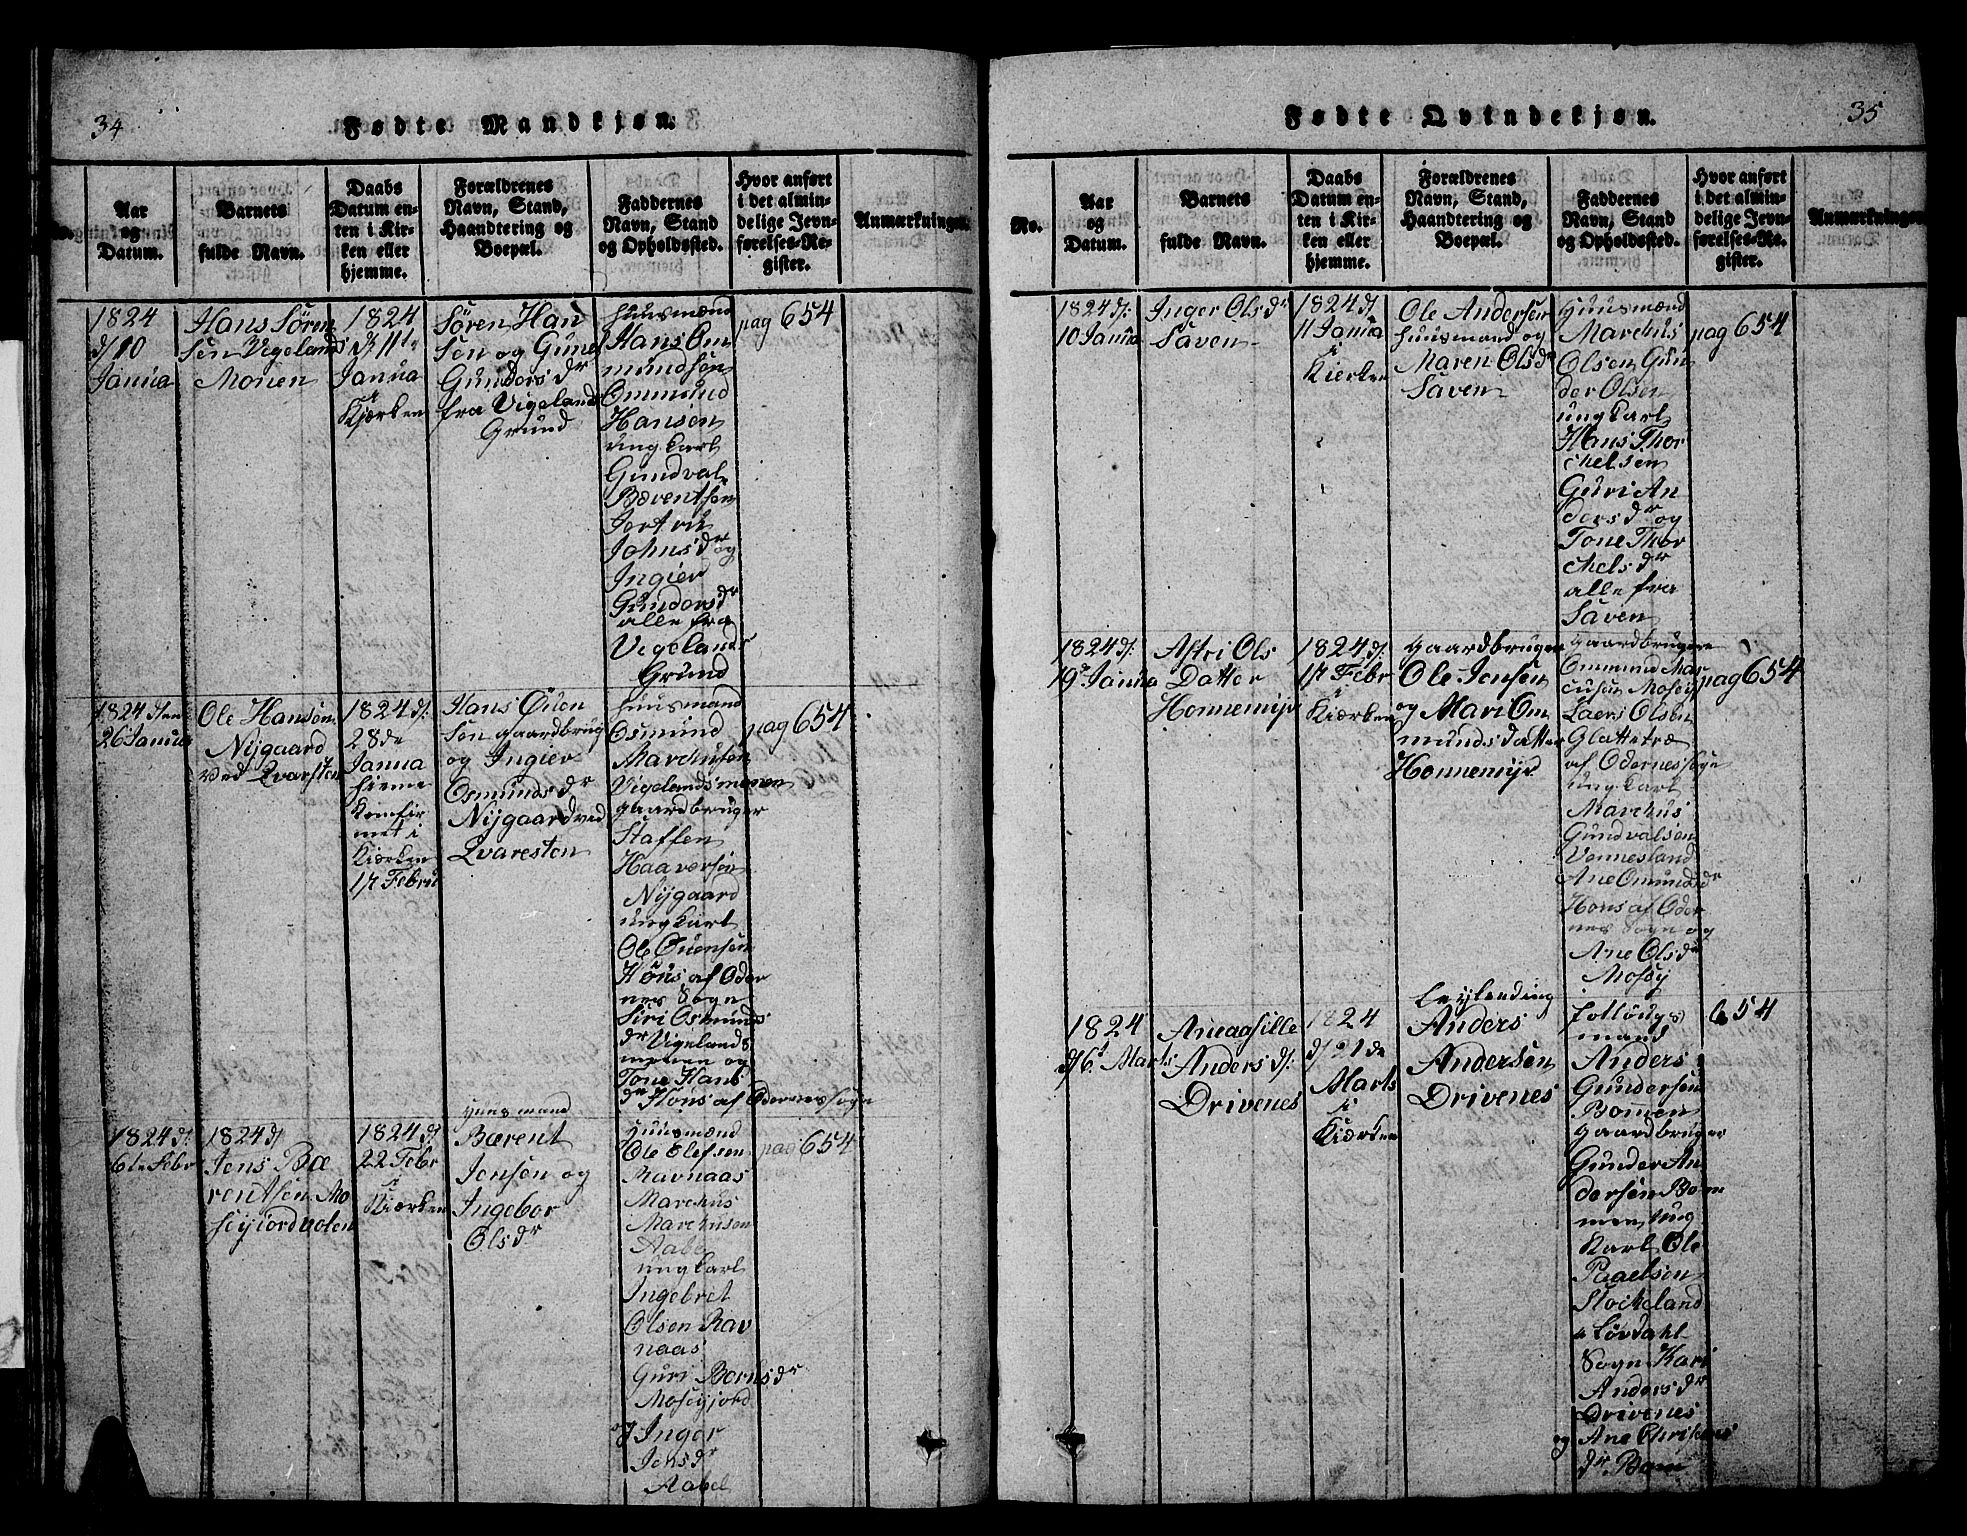 34
Fødte Mandkjøn.
Aar og Datum.
Barnets fulde Navn.
Daabs Datum enten i Kirken eller hjemme.
Forældrenes Navn, Stand, Haandtering og Boepæl.
Faddernes Navn, Stand og Opholdssted.
Hvor anført i det almindelige Jevnførelses-Register.
Anmærkninger.
1824
d/10
Janua
Hans Søren
sen Vigelands
Monen
1824
d: 11te
Janua
i
Kjærken
Søren Han
sen og Gune
Gundors dr
fra Vigelands
Grund
Huusmænd
Hans Om
mundsen
Ommund
Hansen
ungkarl
Gundval
Bærentsen
Jertru
Johns dr og
Ingier
Gundors dr
alle fra
Vigelands
Grund
pag 654
1824 den
26 Janua
Ole Hansen
Nijgaard
ved Qvarsten
1824 d:
28de
Janua
hieme
Komfir
met i
Kiærken
17 Febru
Hans Ouen
sen gaardbrug
og Ingier
Osmunds dr
Nijgaard ved
Qvaresten
Huusmand
Osmund
Marchusen
Vigelandsmonen
gaardbruger
Staffen
Haaversen
Nijgaard
ungkarl
Ole Ouensen
Høns af Oder
nes Sogn
Siri Osmunds
dr Vigelands
monen og
Tone Hans
dr Høns af Odernes sogn
pag 654
1824 d:
6te Febr
1824 d/
Jens Bæ
rentsen Mo
seyjordvolen
1824 d/
22 Febr
i
Kiærken
Huusmand
Bærent
Jensen og
Ingebor
Ols dr
Huusmænd
Ole Olefsen
Ravnaas
Marchus
Marchusen
Aabe
ungkarl
Ingebret
Olsen Rav
naas
Guri Bernts dr
Moseyjord
og Inger
Jens dr
Aabel
pag 654
Fødte Qvindekjøn.
35
No.
Aar og Datum.
Barnets fulde Navn.
Daabs Datum enten i Kirken eller hjemme.
Forældrenes Navn, Stand, Haandtering og Boepæl.
Faddernes Navn, Stand og Opholdssted.
Hvor anført i det almindelige Jevnførelses-Register.
Anmærkninger.
1824 d:
10 Janua
Inger Ols dr
Saven
1824 d/
11 Janua
i
Kierken
Ole Andersen
huusmand og
Maren Ols dr
Saven
Huusmænd
Marchus
Olsen Gun
der Olsen
ungkarl
Hans Thor
chelsen
Guri An
ders dr og
Tone Thor
chels dr
alle fra
Saven
pag 654
1824 d:
19de Janua
Astri Ols
Datter
Honnemijr
1824 d:
17 Febr
i
Kiærken
gaardbruger
Ole Jensen
og Mari Om
munds datter
Honnemijr
gaardbrugere
Ommund Mar
cusen Mosøy
Laers Olsen
Glattetræ
af Odernes sogn
ungkarl
Marchus
Gundvalsen
Vennesland
Ane Omunds dr
Høns af Oder
nes Sogn og
Ane Ols dr
Mosøy
pag 654
1824
d/6te Marts
Aneaasille
Anders d:
Drivenes
1824
d/21de
Marts
i
Kiærken
Leylending
Anders
Andersen
Drivenes
mand
Anders
Gundersen
Bomen
gaardbruger
Gunder An
dersen Bom
men, ung
karl Ole
Paaelsen
Stockeland
Løvdahl
Sogn Kari
Anders dr
Drivenes
og Ane Christens
dr Bom
654